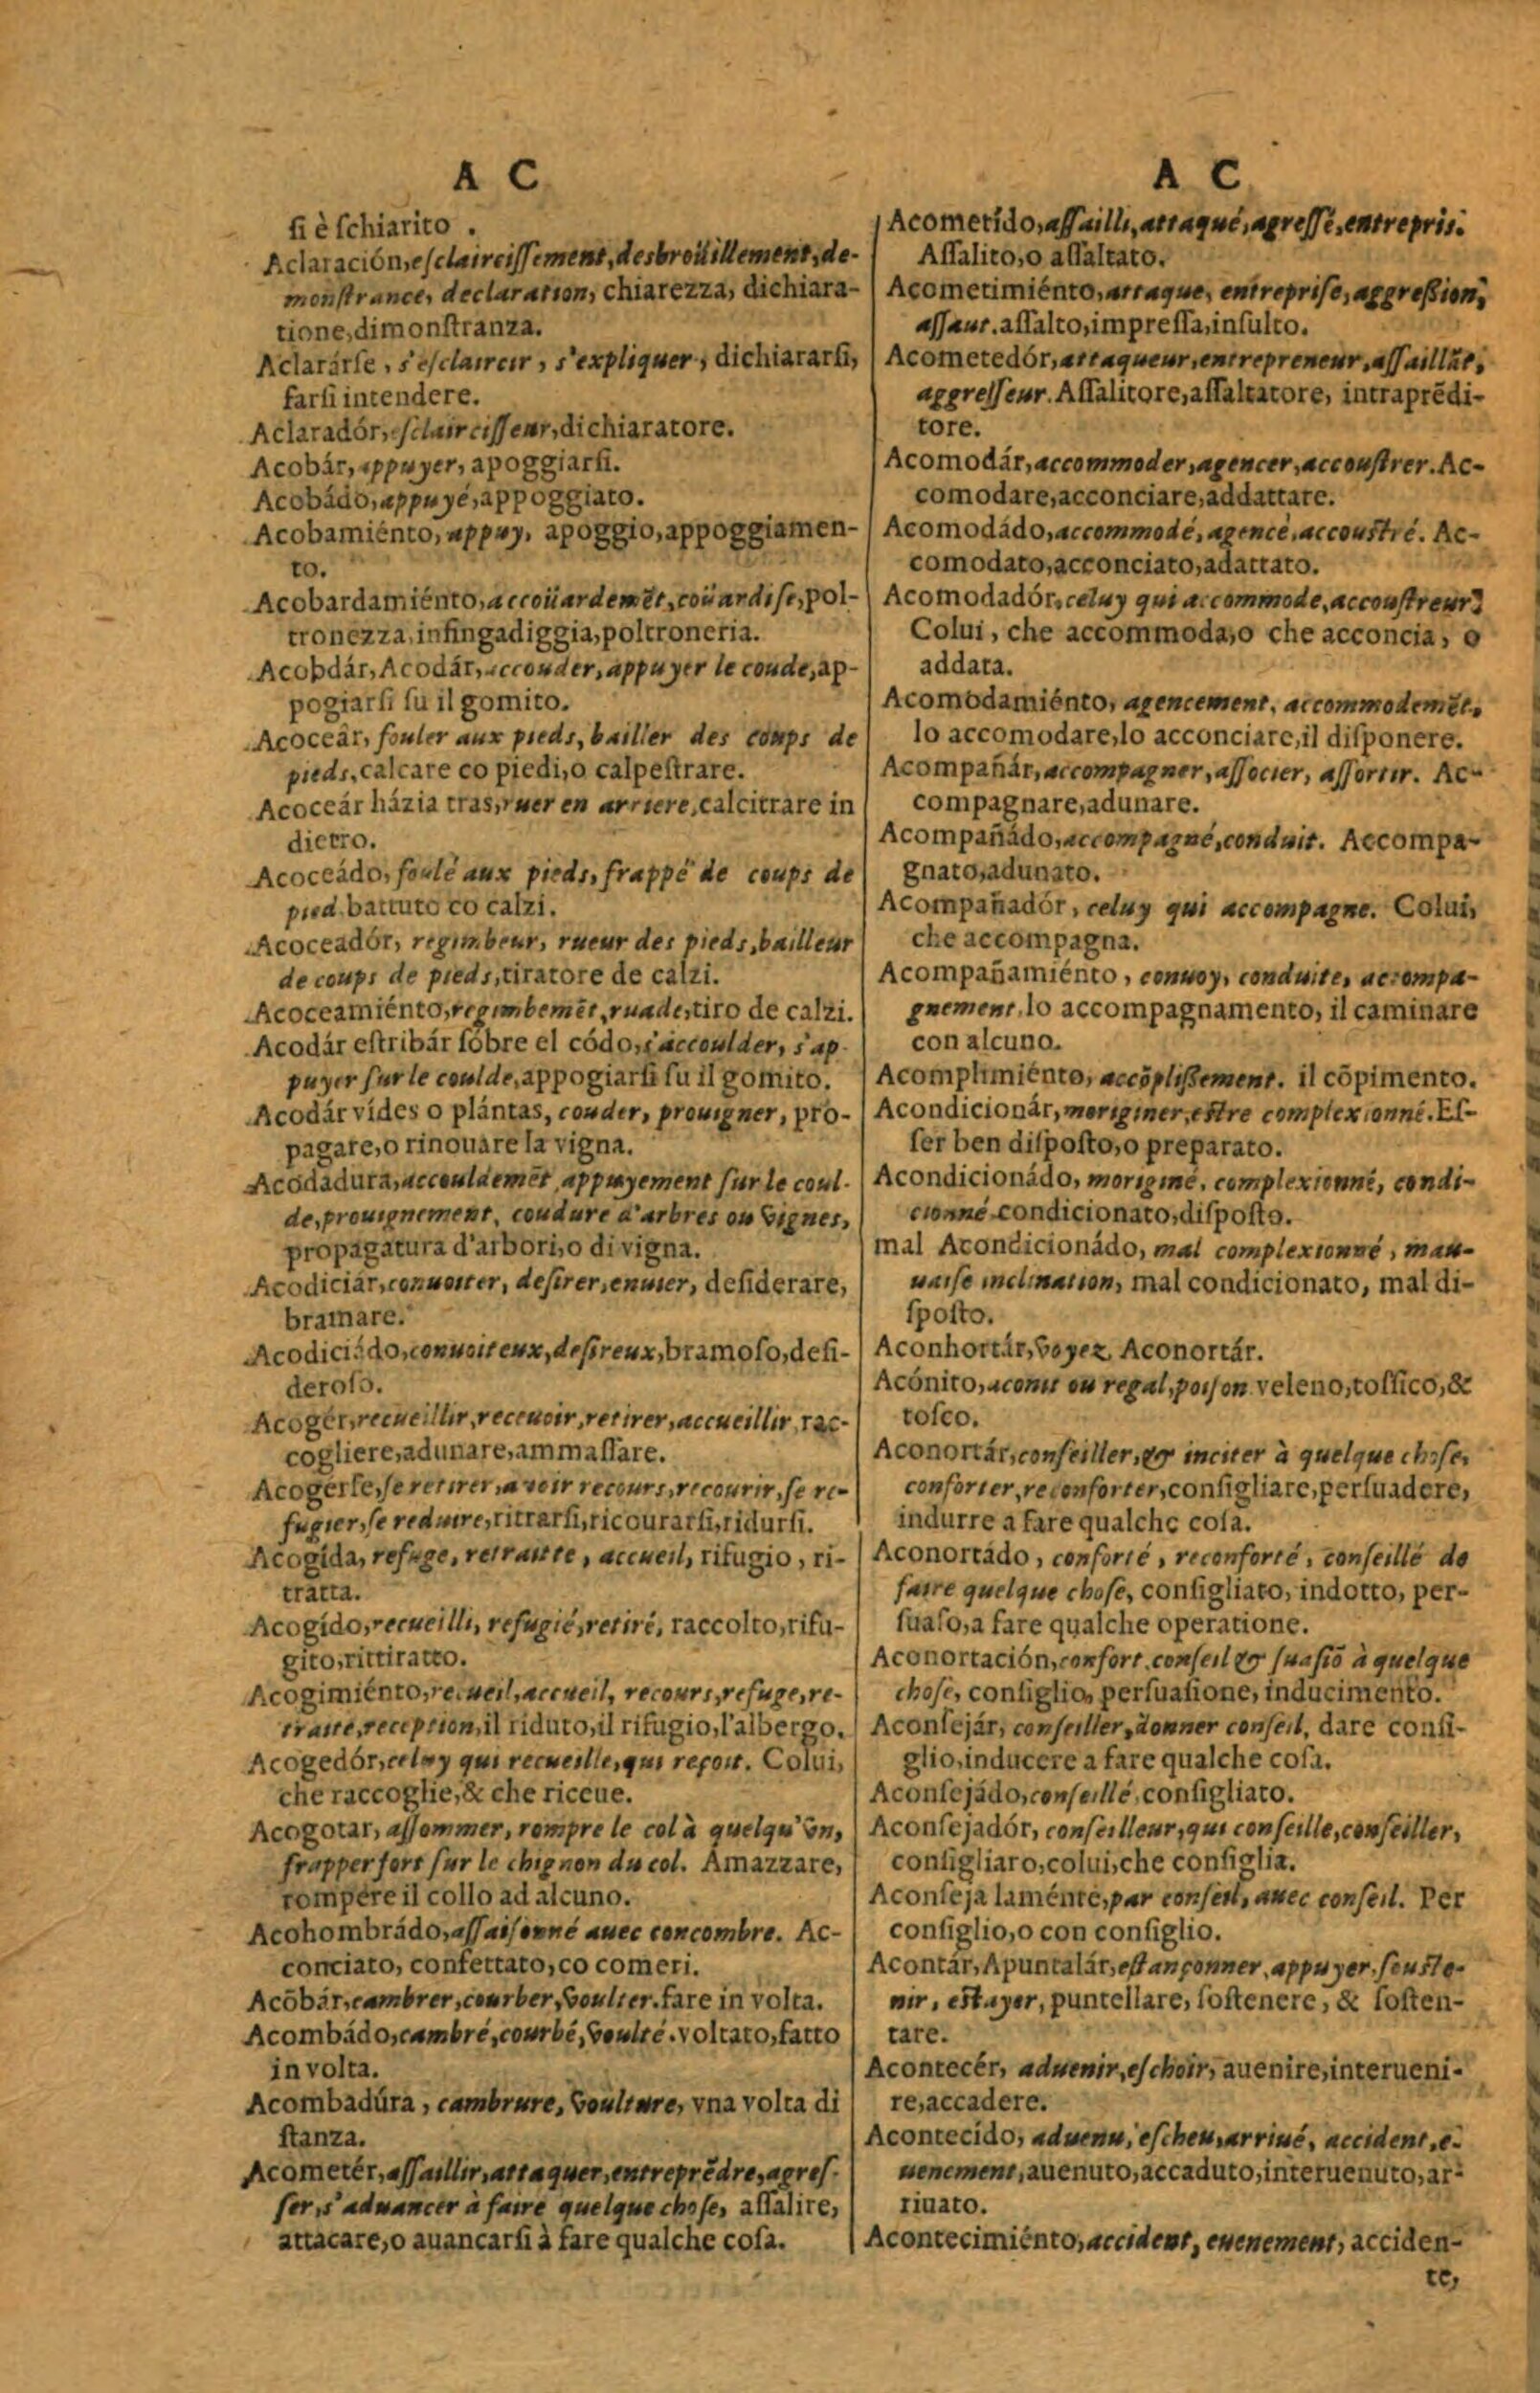 A C
ſi è ſchiarito .
Aclaración, eſclairciſſement, desbroüillement, de-
monſtrance, declaration, chiarezza, dichiara-
tione, dimonſtranza.
Aclarárſe, s'eſclaircir, s'expliquer, dichiararſi,
farſi intendere.
Aclaradór, eſclairciſſeur, dichiaratore.
Acobár, appuyer, apoggiarſi.
Acobádo, appuyé, appoggiato.
Acobamiénto, appuy, apoggio, appoggiamen-
to.
Acobardamiénto, accoüardemẽt, coüardiſe, pol-
tronezza, infingadiggia, poltroneria.
Acobdár, Acodár, accouder, appuyer le coude, ap-
pogiarſi ſu il gomito.
Acoceár, fouler aux pieds, bailler des coups de
pieds, calcare co piedi, o calpeſtrare.
Acoceár házia tras, ruer en arriere, calcitrare in
dietro.
Acoceádo, foulé aux pieds, frappé de coups de
pied. battuto co calzi.
Acoceadór, regimbeur, rueur des pieds, bailleur
de coups de pieds, tiratore de calzi.
Acoceamiénto, regimbemẽt, ruade, tiro de calzi.
Acodár eſtribár ſóbre el códo, s'accoulder, s'ap-
puyer ſur le coulde, appogiarſi ſu il gomito.
Acodár vídes o plántas, couder, prouigner, pro-
pagare, o rinouare la vigna.
Acodadura, accouldemẽt, appuyement ſur le coul-
de, prouignement, coudure d'arbres ou vignes,
propagatura d'arbori, o di vigna.
Acodiciár, conuoiter, deſirer, enuier, deſiderare,
bramare.
Acodiciádo, conuoiteux, deſireux, bramoſo, deſi-
deroſo.
Acogér, recueillir, receuoir, retirer, accueillir, rac-
cogliere, adunare, ammaſſare.
Acogerſe, ſe retirer, avoir recours, recourir, ſe re-
fugier, ſe reduire, ritrarſi, ricourarſi, ridurſi.
Acogída, refuge, retraitte, accueil, rifugio, ri-
tratta.
Acogído, recueilli, refugié, retiré, raccolto, rifu-
gito, rittiratto.
Acogimiénto, recueil, accueil, recours, refuge, re-
traite, reception, il riduto, il rifugio, l'albergo.
Acogedór, celuy qui recueille, qui reçoit. Colui,
che raccoglie, & che riceue.
Acogotar, aſſommer, rompre le col à quelqu'vn,
frapper fort ſur le chignon du col. Amazzare,
rompere il collo ad alcuno.
Acohombrádo, aſſaiſonné auec concombre. Ac-
conciato, confettato, co comeri.
Acõbár, cambrer, courber, voulter. fare in volta.
Acombádo, cambré, courbé, voulté. voltato, fatto
in volta.
Acombadúra, cambrure, voulture, vna volta di
ſtanza.
Acometér, aſſaillir, attaquer, entreprẽdre, agreſ-
ſer, s'aduancer à faire quelque choſe, aſſalire,
attacare, o auancarſi à fare qualche coſa.
A C
Acometído, aſſailli, attaqué, agreſſé, entrepris.
Aſſalito, o aſſaltato.
Acometimiénto, attaque, entrepriſe, aggreßion,
aſſaut. aſſalto, impreſſa, inſulto.
Acometedór, attaqueur, entrepreneur, aſſaillãt,
aggreſſeur. Aſſalitore, aſſaltatore, intraprẽdi-
tore.
Acomodár, accommoder, agencer, accouſtrer. Ac-
comodare, acconciare, addattare.
Acomodádo, accommodé, agencé, accouſtré. Ac-
comodato, acconciato, adattato.
Acomodadór, celuy qui accommode, accouſtreur.
Colui, che accommoda, o che acconcia, o
addata.
Acomodamiénto, agencement, accommodemẽt,
lo accomodare, lo acconciare, il diſponere.
Acompañár, accompagner, aſſocier, aſſortir. Ac-
compagnare, adunare.
Acompañádo, accompagné, conduit. Accompa-
gnato, adunato.
Acompañadór, celuy qui accompagne. Colui,
che accompagna.
Acompañamiénto, conuoy, conduite, accompa-
gnement, lo accompagnamento, il caminare
con alcuno.
Acomplimiénto, accõplißement. il cõpimento.
Acondicionár, moriginer, eſtre complexionné. Eſ-
ſer ben diſpoſto, o preparato.
Acondicionádo, moriginé, complexionné, condi-
cionné. condicionato, diſpoſto.
mal Acondicionádo, mal complexionné, mau-
uaiſe inclination, mal condicionato, mal di-
ſpoſto.
Aconhortár, voyez Aconortár.
Acónito, aconit ou regal, poiſon. veleno, toſſico, &
toſco.
Aconortár, conſeiller, & inciter à quelque choſe,
conforter, reconforter, conſigliare, perſuadere,
indurre a fare qualche coſa.
Aconortádo, conforté, reconforté, conſeillé de
faire quelque choſe, conſigliato, indotto, per-
ſuaſo, a fare qualche operatione.
Aconortación, confort, conſeil & ſuaſiõ à quelque
choſe, conſiglio, perſuaſione, inducimento.
Aconſejár, conſeiller, donner conſeil, dare conſi-
glio, inducere a fare qualche coſa.
Aconſejádo, conſeillé, conſigliato.
Aconſejadór, conſeilleur, qui conſeille, conſeiller,
conſigliaro, colui, che conſiglia.
Aconſeja laménte, par conſeil, auec conſeil. Per
conſiglio, o con conſiglio.
Acontár, Apuntalár, eſtançonner, appuyer, ſouſte-
nir, eſtayer, puntellare, ſoſtenere, & ſoſten-
tare.
Acontecér, aduenir, eſchoir, auenire, interueni-
re, accadere.
Acontecído, aduenu, eſcheu, arriué, accident, e-
uenement, auenuto, accaduto, interuenuto, ar-
riuato.
Acontecimiénto, accident, euenement, acciden-
te,